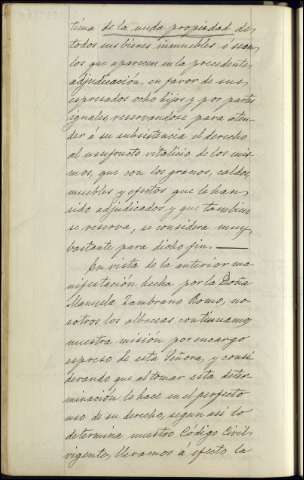 tima de la nuda propiedad de
todos sus bienes inmuebles ó sean
los que aparecen en la precedente
adjudicación, en favor de sus
espresados ocho hijos y por partes
iguales, reservandose para aten-
der á su subsistencia el derecho
al usufructo vitalicio de los mis-
mos, que con los granos, caldos,
muebles y efectos que le han
sido adjudicados y que tambien
se reserva, se considera muy
bastante para dicho fin.
En vista de la anterior ma-
nifestación hecha por la Doña
Manuela Zambrano Romo, no-
sotros los albaceas continuamos
nuestra misión por encargo
espreso de esta Señora, y consi-
derando que al tomar esta deter-
minación lo hace en el perfecto
uso de su derecho, segun asi lo
determina nuestro Código Civil
vigente, llevamos á efecto la